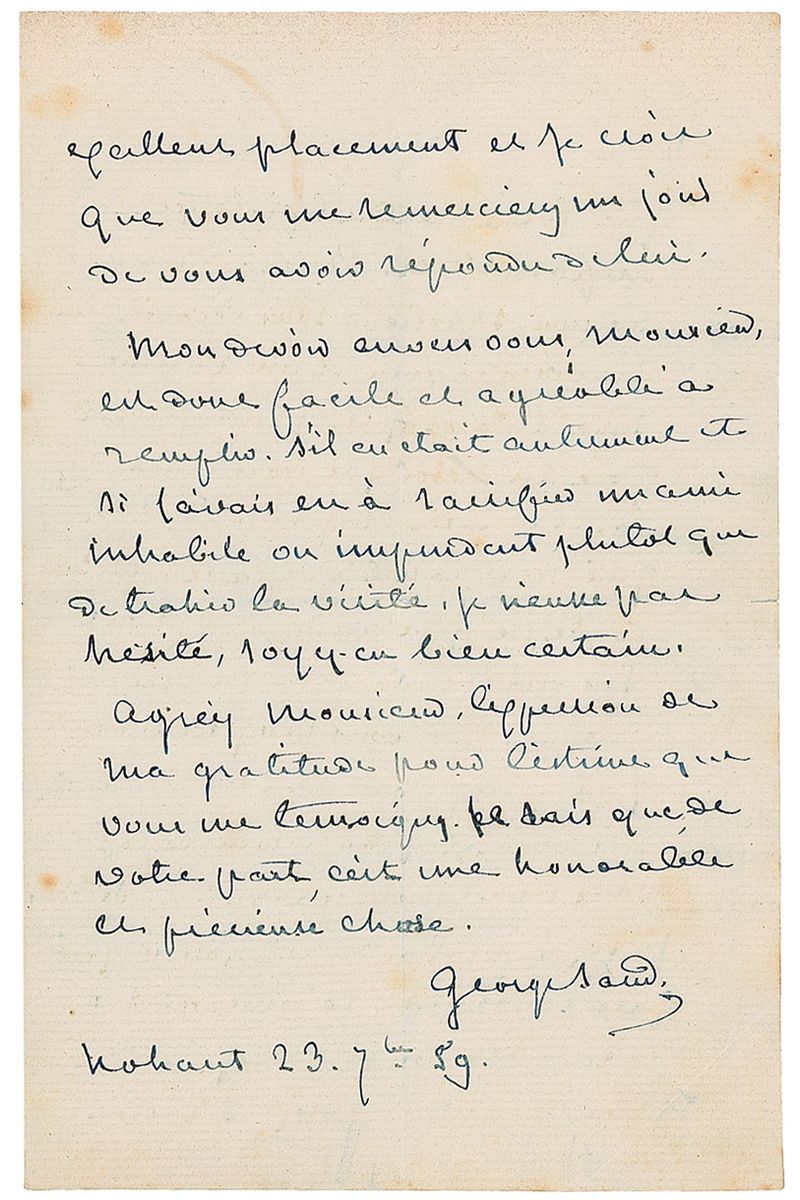 excellent placement et je crois
que vous me remercierez un jour
de vous avoir répondu de lui.
Mon devoir envers vous, monsieur,
est donc facile et agréable à
remplir. S'il en etait autrement et
si j'avais eu à sacrifier un ami
inhabile ou imprudent plutot que
de trahir la vérité, je n'eusse pas
hésité, soyez-en bien certain.
Agréez Monsieur, l'expression de
ma gratitude pour l'estime que
vous me temoignez. Je sais que de
votre part, c'est une honorable
et précieuse chose.
George Sand.
Nohant 23. 7bre 59.